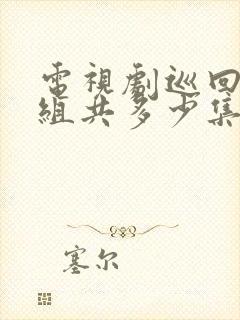 電視劇巡回
組共多少集
塞尔